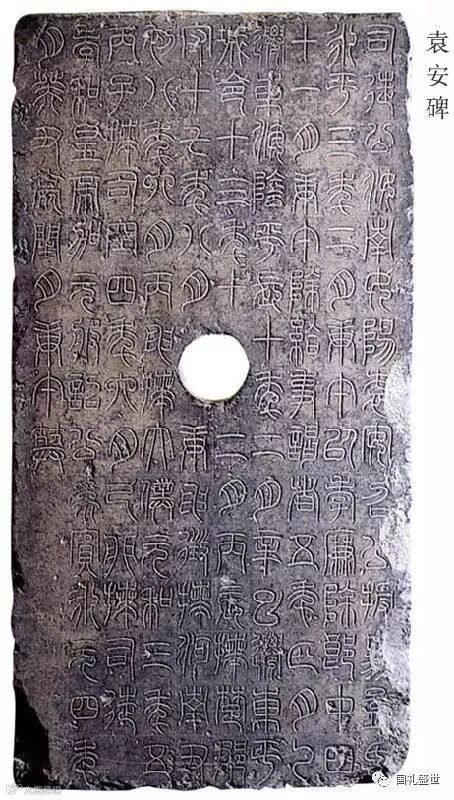 袁安碑
司徒公汝南女陽袁安召公授易孟氏
永平三年二月庚午以孝廉除郎中四
十一月庚午除給事謁者五年四月乙
遷東海陰平長十年二月辛巳遷東平
城令十三年十二月丙辰拜楚郡
守十七年八月庚申徵拜河南尹
初八年六月丙申拜太僕元和三年五
丙子拜司空四年六月己卯拜司徒
孝和皇帝加元服詔公為賓永元四年
月癸丑薨閏月庚午葬
国礼盛世